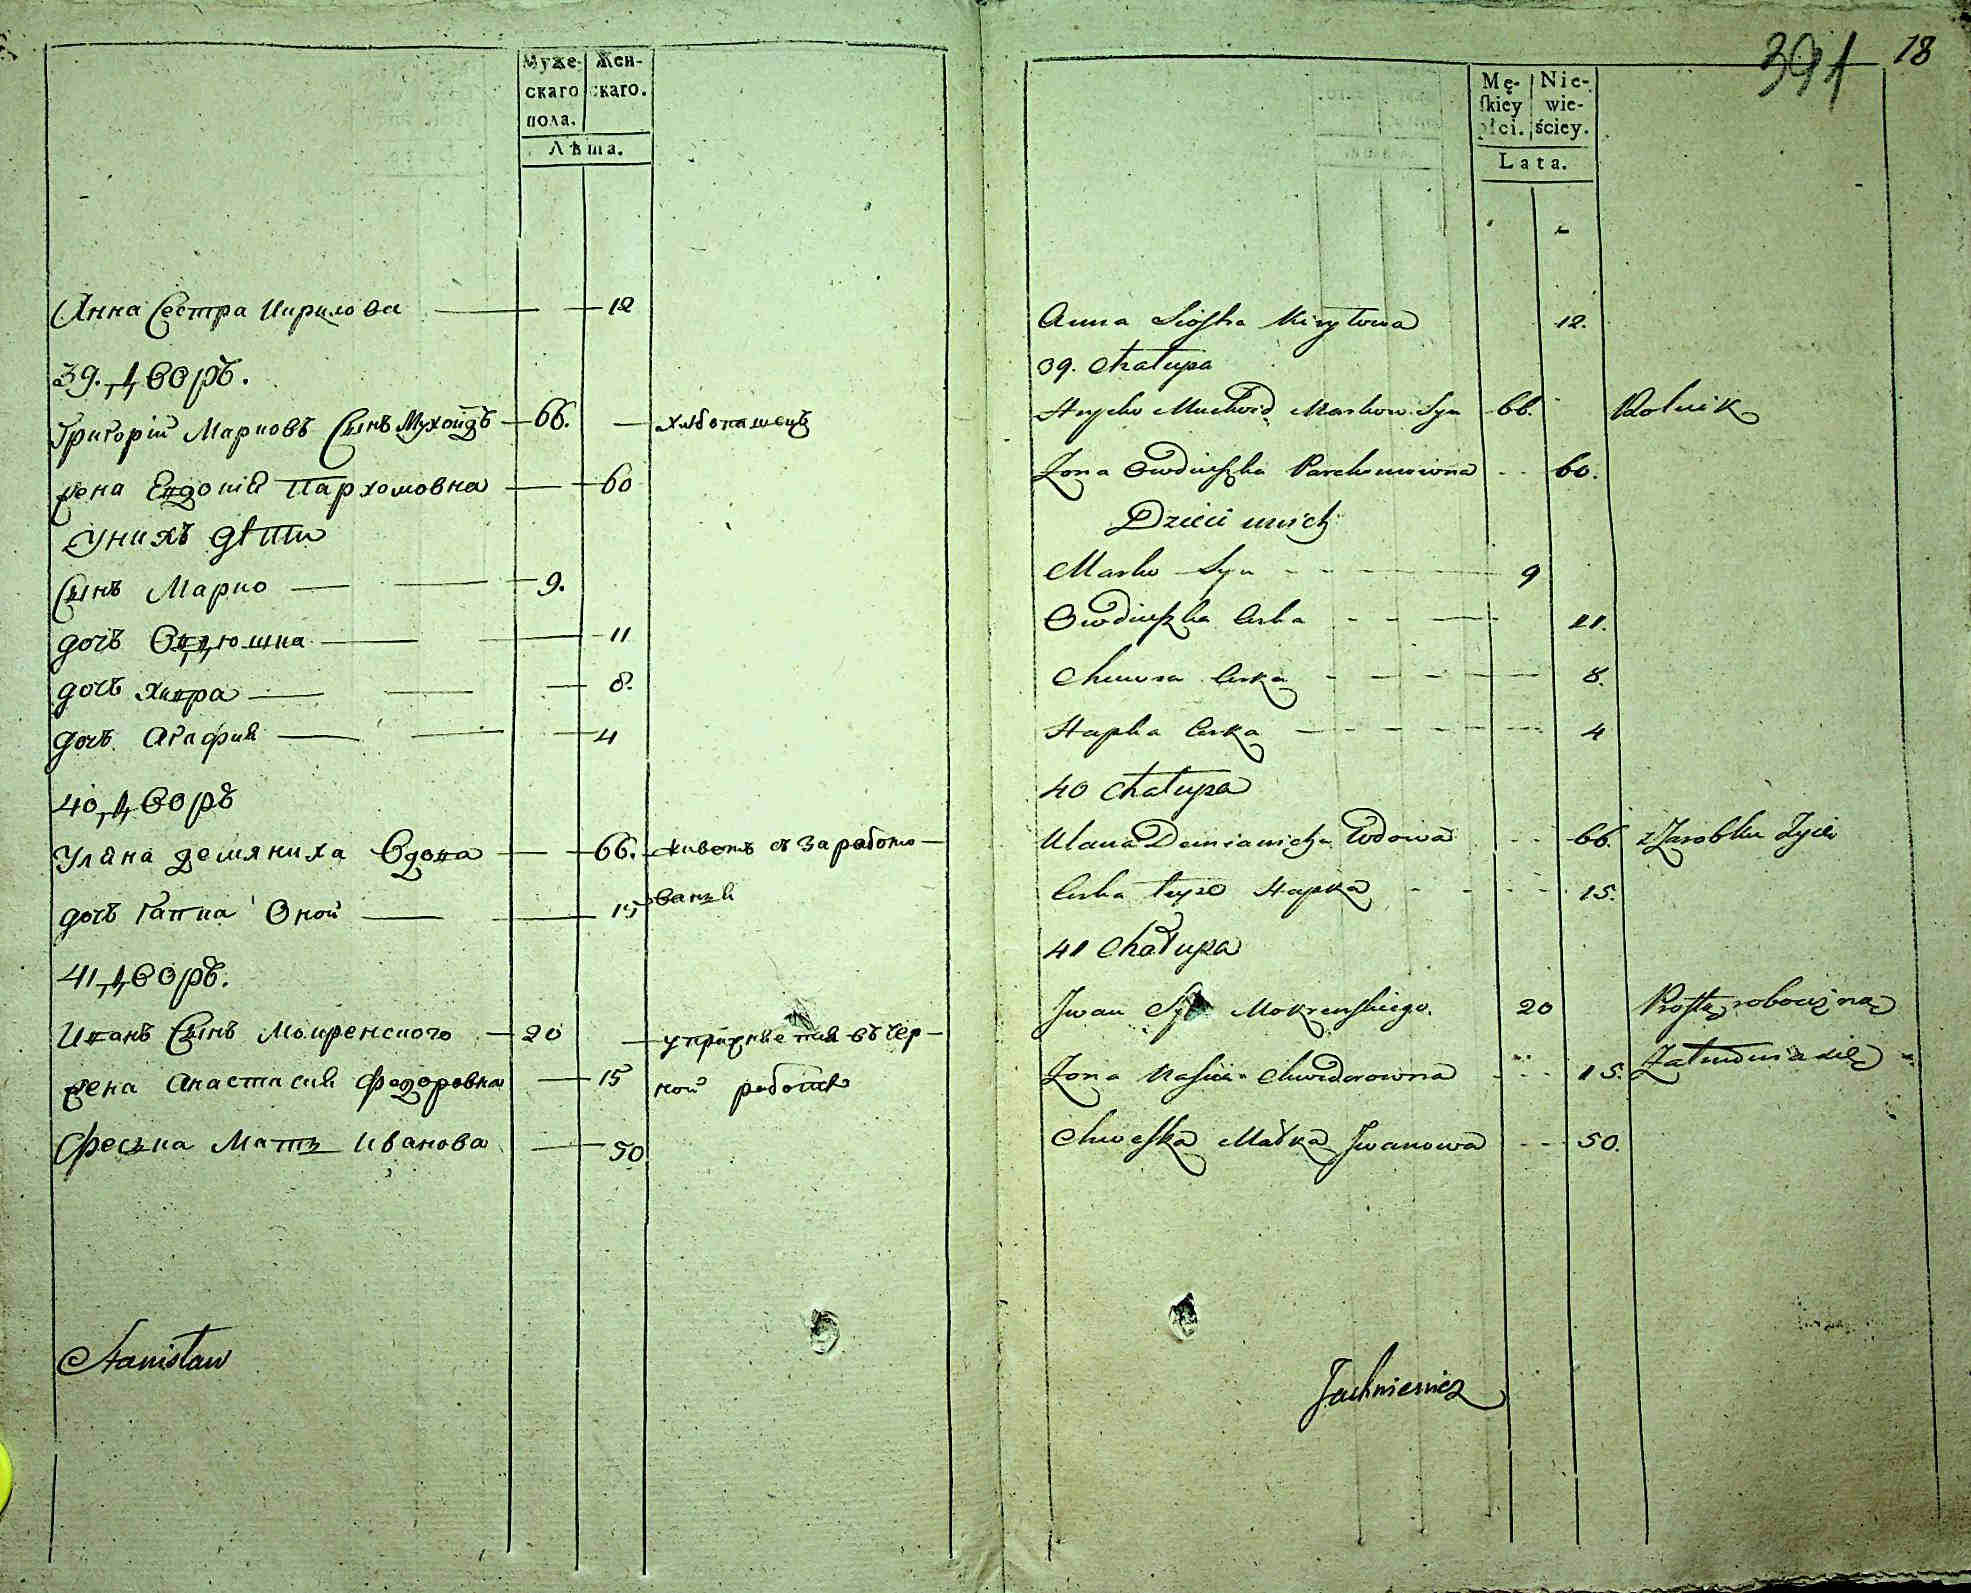 Муже-
скаго
пола.
Жен-
скаго.
Лѣта.
Анна Сестра Кирилова 12
39. дворъ.
Григорій Марковъ Сынъ Мухоидъ 66. хлѣбопашецъ
жена Евдокія Пархомовна 60
У нихъ дѣти
Сынъ Марко 9.
дочъ Овдюшка 11
дочъ Хивра 8.
дочъ Агафия 4
40 дворъ
Уляна демяниха Вдова 66. живетъ съ заработо-
дочъ Гапка Оной 15 ванія
41 дворъ.
Иванъ Сынъ Мокренского 20 упражняется въ чер-
жена Анастасия Федоровна 15 ной работе
Феська Мать Иванова 50
Stanisław
391 18
Mę-
skiey
płci.
Nie-
wie-
ściey.
Lata.
Anna Siostra Kiryłowa 12.
39. Chałupa
Hryćko Muchoid Markow Syn 66. Rolnik
Żona Owdiuszka Parchomowna 60.
Dzieci u nich
Marko Syn 9
Owdiuszka Curka 11.
Chiwra Curka 8.
Hapka Curka 4
40 Chałupa
Ulana Demianicha Wdowa 66. z Zarobku Żyie
Curka teyże Hapka 15.
41 Chałupa
Jwan Syn Mokrenskiego. 20 Prostą robocizną
Żona Nascia Chwedorowna 15. Zatrudnia się
Chweska Matka Jwanowa 50.
Jachniewicz